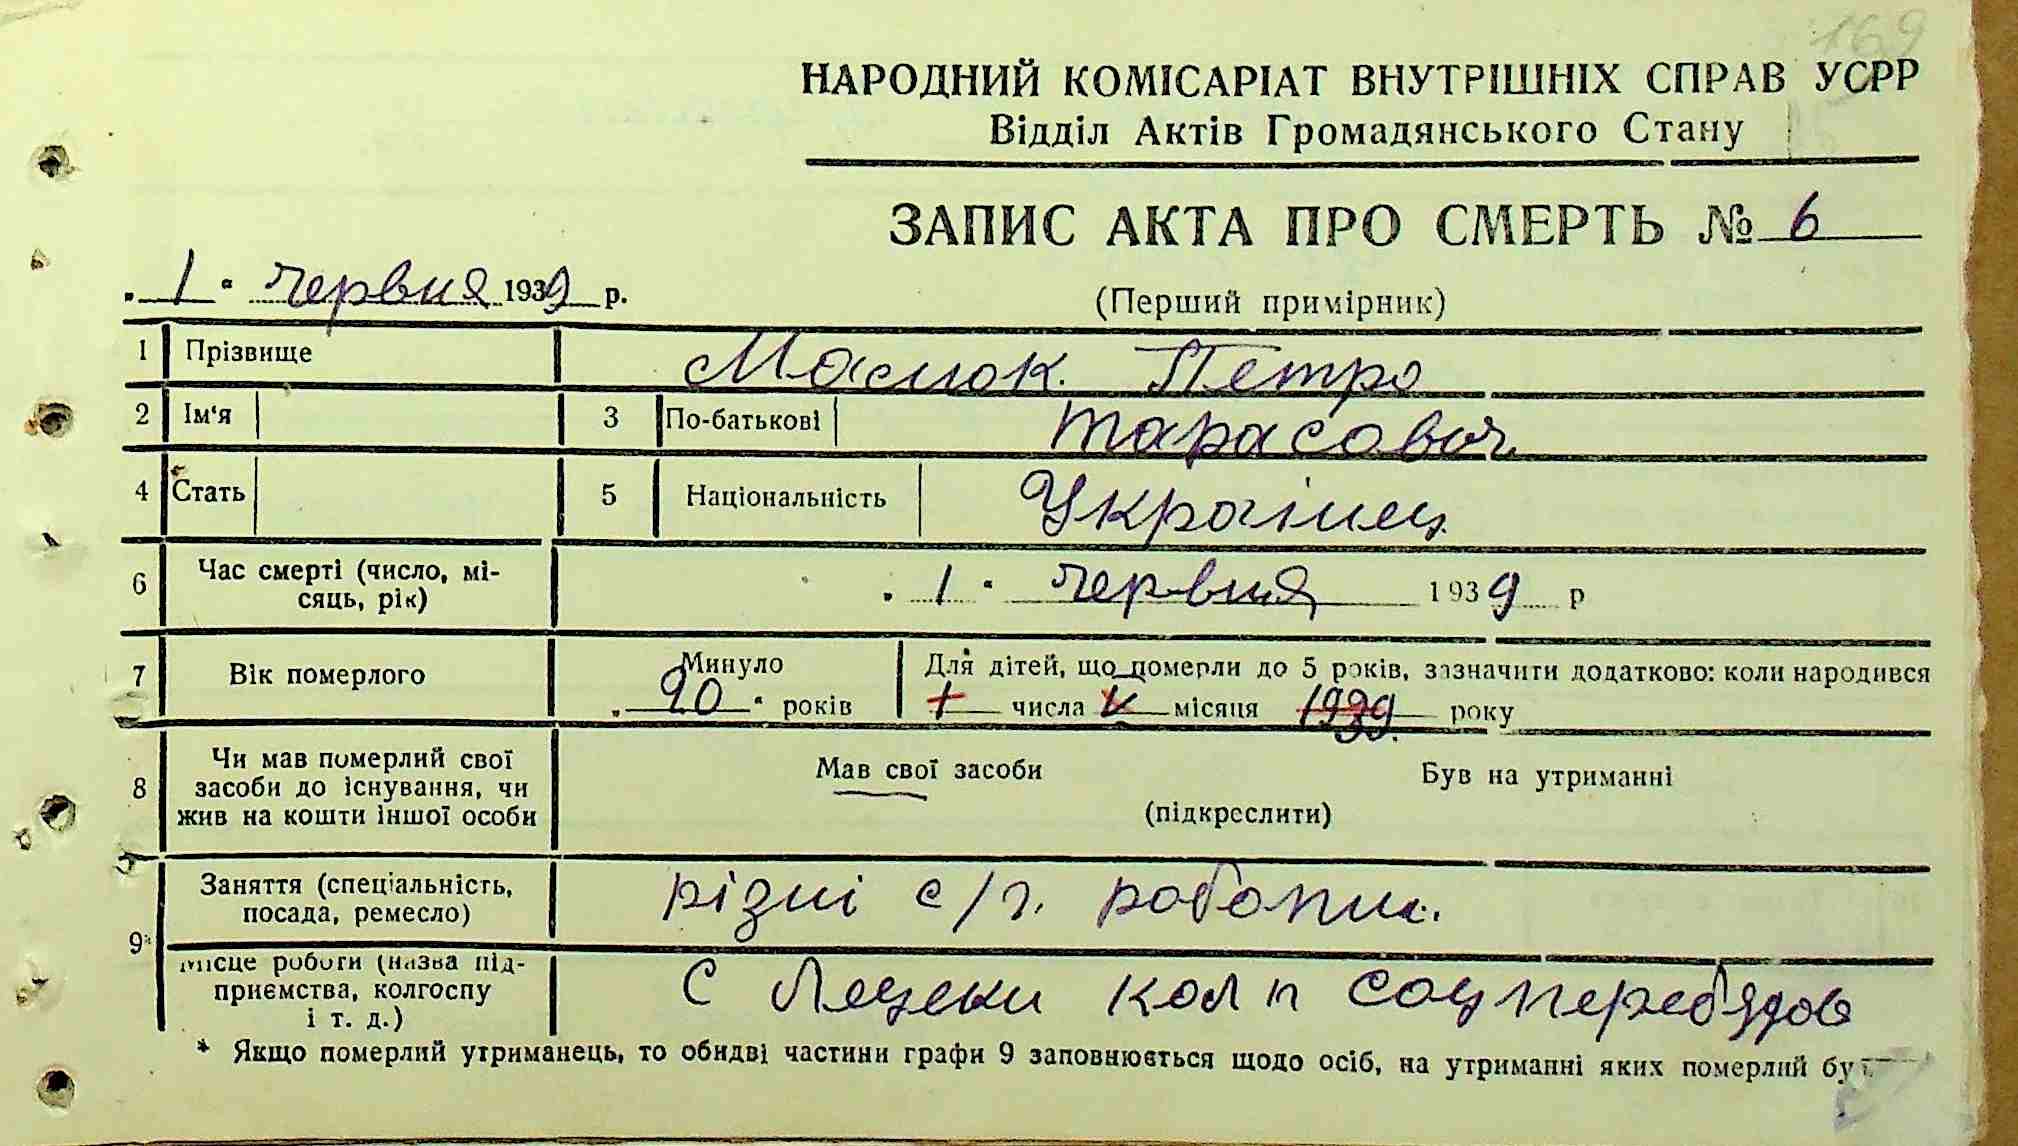 169
НАРОДНИЙ КОМІСАРІАТ ВНУТРІШНІХ СПРАВ УСРР
Відділ Актів Громадянського Стану
ЗАПИС АКТА ПРО СМЕРТЬ № 6
„ 1 “ червня 1939 р.
(Перший примірник)
1 Прізвище Маслюк Петро
2 Ім‘я 3 По-батькові Тарасович
4 Стать 5 Національність Українец
6 Час смерті (число, мі-
сяць, рік) „ 1 “ червня 1939 р
7 Вік померлого Минуло Для дітей, що померли до 5 років, зазначити додатково: коли народився
„ 90 “ років 1 числа V місяця 1939 року
8 Чи мав померлий свої
засоби до існування, чи
жив на кошти іншої особи
Мав свої засоби Був на утриманні
(підкреслити)
9* Заняття (спеціальність,
посада, ремесло) різні с/г. роботи.
Місце роботи (назва під-
приємства, колгоспу
і т. д.) С Лецеки кол п Соцперебудов
* Якщо померлий утриманець, то обидві частини графи 9 заповнюється щодо осіб, на утриманні яких померлий був